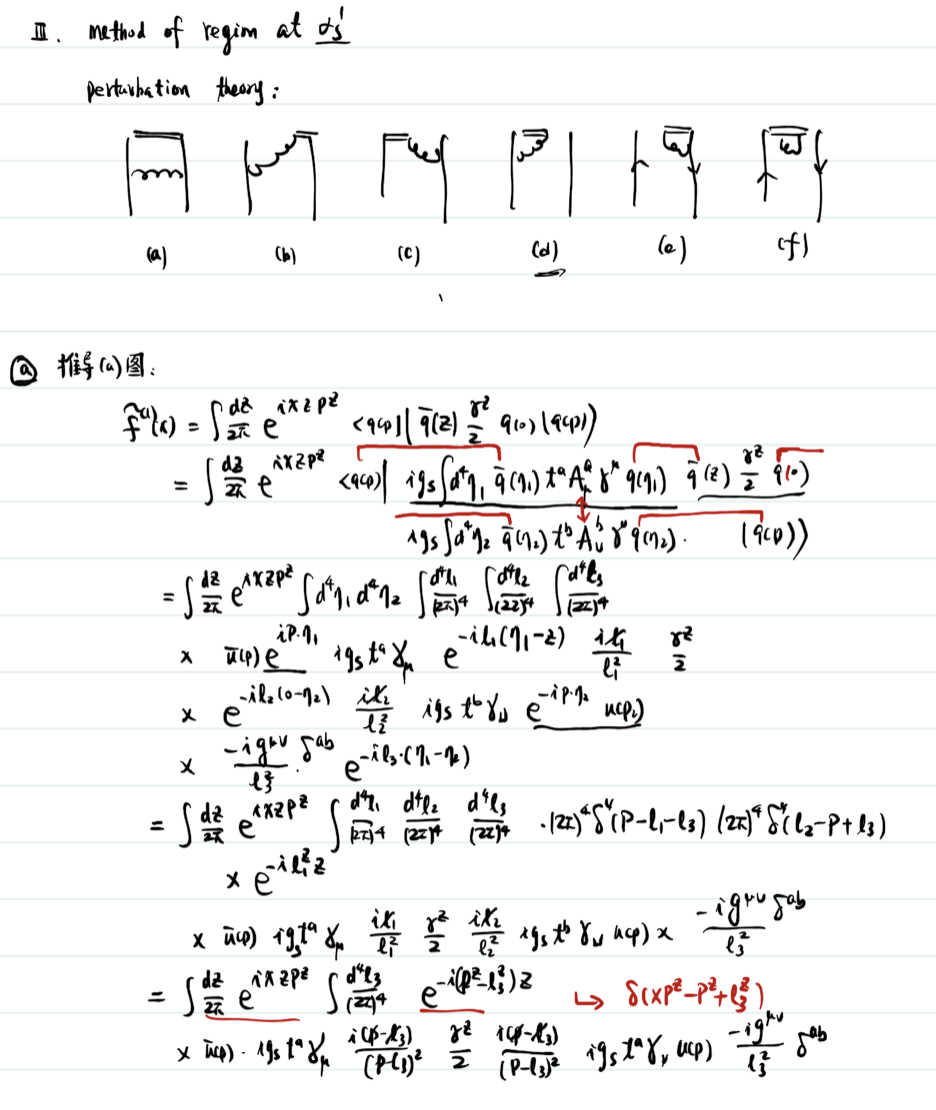 III. method of region at αs¹
perturbation theory:
(a) (b) (c) (d) (e) (f)
ⓐ 推导(a)图:
f̃⁽ᵃ⁾(x) = ∫ dz/2π e^{ixzp^z} <q(p)| q̄(z) γ^z/2 q(0) |q(p)>
= ∫ dz/2π e^{ixzp^z} <q(p)| igs∫d⁴η₁ q̄(η₁) t^a A^a_μ γ^μ q(η₁) q̄(z) γ^z/2 q(0)
igs∫d⁴η₂ q̄(η₂) t^b A^b_ν γ^ν q(η₂). |q(p)>
= ∫ dz/2π e^{ixzp^z} ∫d⁴η₁ d⁴η₂ ∫ d⁴l₁/(2π)⁴ ∫ d⁴l₂/(2π)⁴ ∫ d⁴l₃/(2π)⁴
× ū(p) e^{ip·η₁} igs t^a γ_μ e^{-il₁(η₁-z)} il̸₁/l₁² γ^z/2
× e^{-il₂(0-η₂)} il̸₂/l₂² igs t^b γ_ν e^{-ip·η₂} u(p₂)
× -ig^{μν}/l₃² δ^{ab} e^{-il₃·(η₁-η₂)}
= ∫ dz/2π e^{ixzp^z} ∫ d⁴l₁/(2π)⁴ d⁴l₂/(2π)⁴ d⁴l₃/(2π)⁴ ·(2π)⁴δ⁴(p-l₁-l₃) (2π)⁴δ⁴(l₂-p+l₃)
× e^{-il₁^z z}
× ū(p) igs t^a γ_μ il̸₁/l₁² γ^z/2 il̸₂/l₂² igs t^b γ_ν u(p) × -ig^{μν} δ^{ab}/l₃²
= ∫ dz/2π e^{ixzp^z} ∫ d⁴l₃/(2π)⁴ e^{-i(p^z-l₃^z)z} ↳ δ(xp^z-p^z+l₃^z)
× ū(p)· igs t^a γ_μ i(p̸-l̸₃)/(p-l₃)² γ^z/2 i(p̸-l̸₃)/(p-l₃)² igs t^a γ_ν u(p) -ig^{μν}/l₃² δ^{ab}